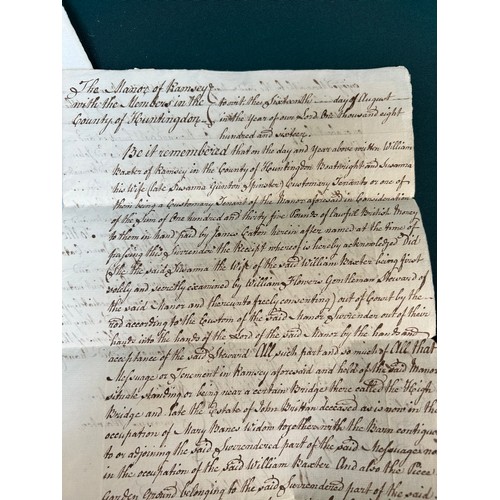 The Manor of Ramsey
with the Members in the
County of Huntingdon
to wit the Sixteenth day of August
in the Year of our Lord One thousand eight
hundred and sixteen
Be it remembered that on the day and Year above written William
Baxter of Ramsey in the County of Huntingdon Boatwright and Susanna
his Wife (late Susanna Gunton Spinster) Customary Tenants or one of
them being a Customary Tenant of the Manor aforesaid in Consideration
of the Sum of One hundred and thirty five Pounds of lawful British Money
to them in hand paid by James herein after named at the time of
passing this Surrender the Receipt whereof is hereby acknowledged Did
(She the said Susanna the Wife of the said William Baxter being first
solely and secretly examined by William Flowers Gentleman Steward of
the said Manor and thereunto freely consenting) out of Court by the
rod according to the Custom of the said Manor Surrender out of their
hands into the hands of the Lord of the said Manor by the hands and
acceptance of the said Steward All such part and so much of All that
Messuage or Tenement in Ramsey aforesaid and held of the said Manor
situate standing or being near a certain Bridge there called the High
Bridge and late the Estate of John Brittan deceased as is now in the
occupation of Mary Banes Widow together with the Barn contiguous
to or adjoining the said Surrendered part of the said Messuage now
in the occupation of the said William Baxter And also the Piece
Garden Ground belonging to the said Surrendered part of the said